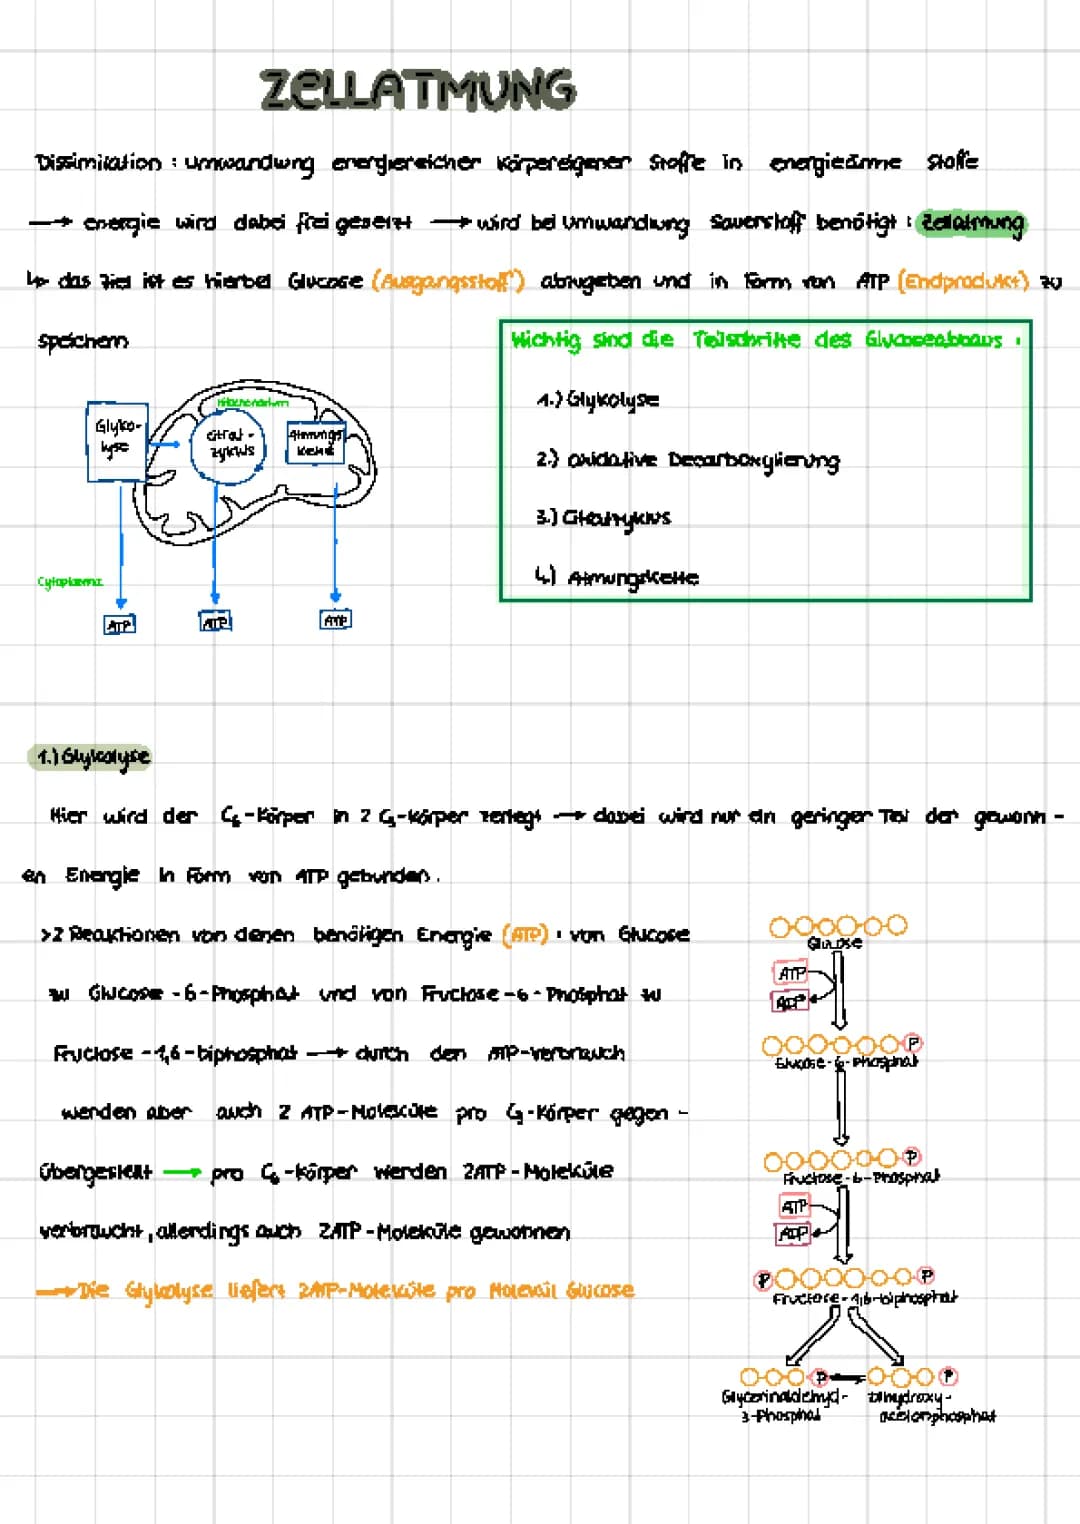 ZELLATMUNG
Dissimilation : Umwandlung energiereicher körpereigener Stoffe in energieärme Stoffe
→ energie wird dabei frei gesetzt → wird bei Umwandlung Sauerstoff benötigt : Zellatmung
↳ das Ziel ist es hierbei Glucose (Ausgangsstoff) abzugeben und in Form von ATP (Endprodukt) zu
speichern
Wichtig sind die Teilschritte des Glucoseabbaus :
1.) Glykolyse
2.) oxidative Decarboxylierung
3.) Citratzyklus
4.) Atmungskette
Mitochondrium
Glyko-
lyse
Citrat-
zyklus
Atmungs
kette
Cytoplasma
ATP
ATP
ATP
1.) Glykolyse
Hier wird der C₆-Körper in 2 C₃-Körper zerlegt → dabei wird nur ein geringer Teil der gewonn-
en Energie in Form von ATP gebunden.
>2 Reaktionen von denen benötigen Energie (ATP) : von Glucose
zu Glucose-6-Phosphat und von Fructose-6-Phosphat zu
Fructose-1,6-biphosphat → durch den ATP-verbrauch
werden aber auch 2 ATP-Moleküle pro C₃-Körper gegen-
übergestellt → pro C₆-Körper werden 2ATP-Moleküle
verbraucht, allerdings auch 2ATP-Moleküle gewonnen
→ Die Glykolyse liefert 2ATP-Moleküle pro Molekül Glucose
Glucose
ATP
ADP
P
Glucose-6-Phosphat
P
Fructose-6-Phosphat
ATP
ADP
P P
Fructose-1,6-biphosphat
P P
Glycerinaldehyd-
3-Phosphat
Dihydroxy-
acetonphosphat